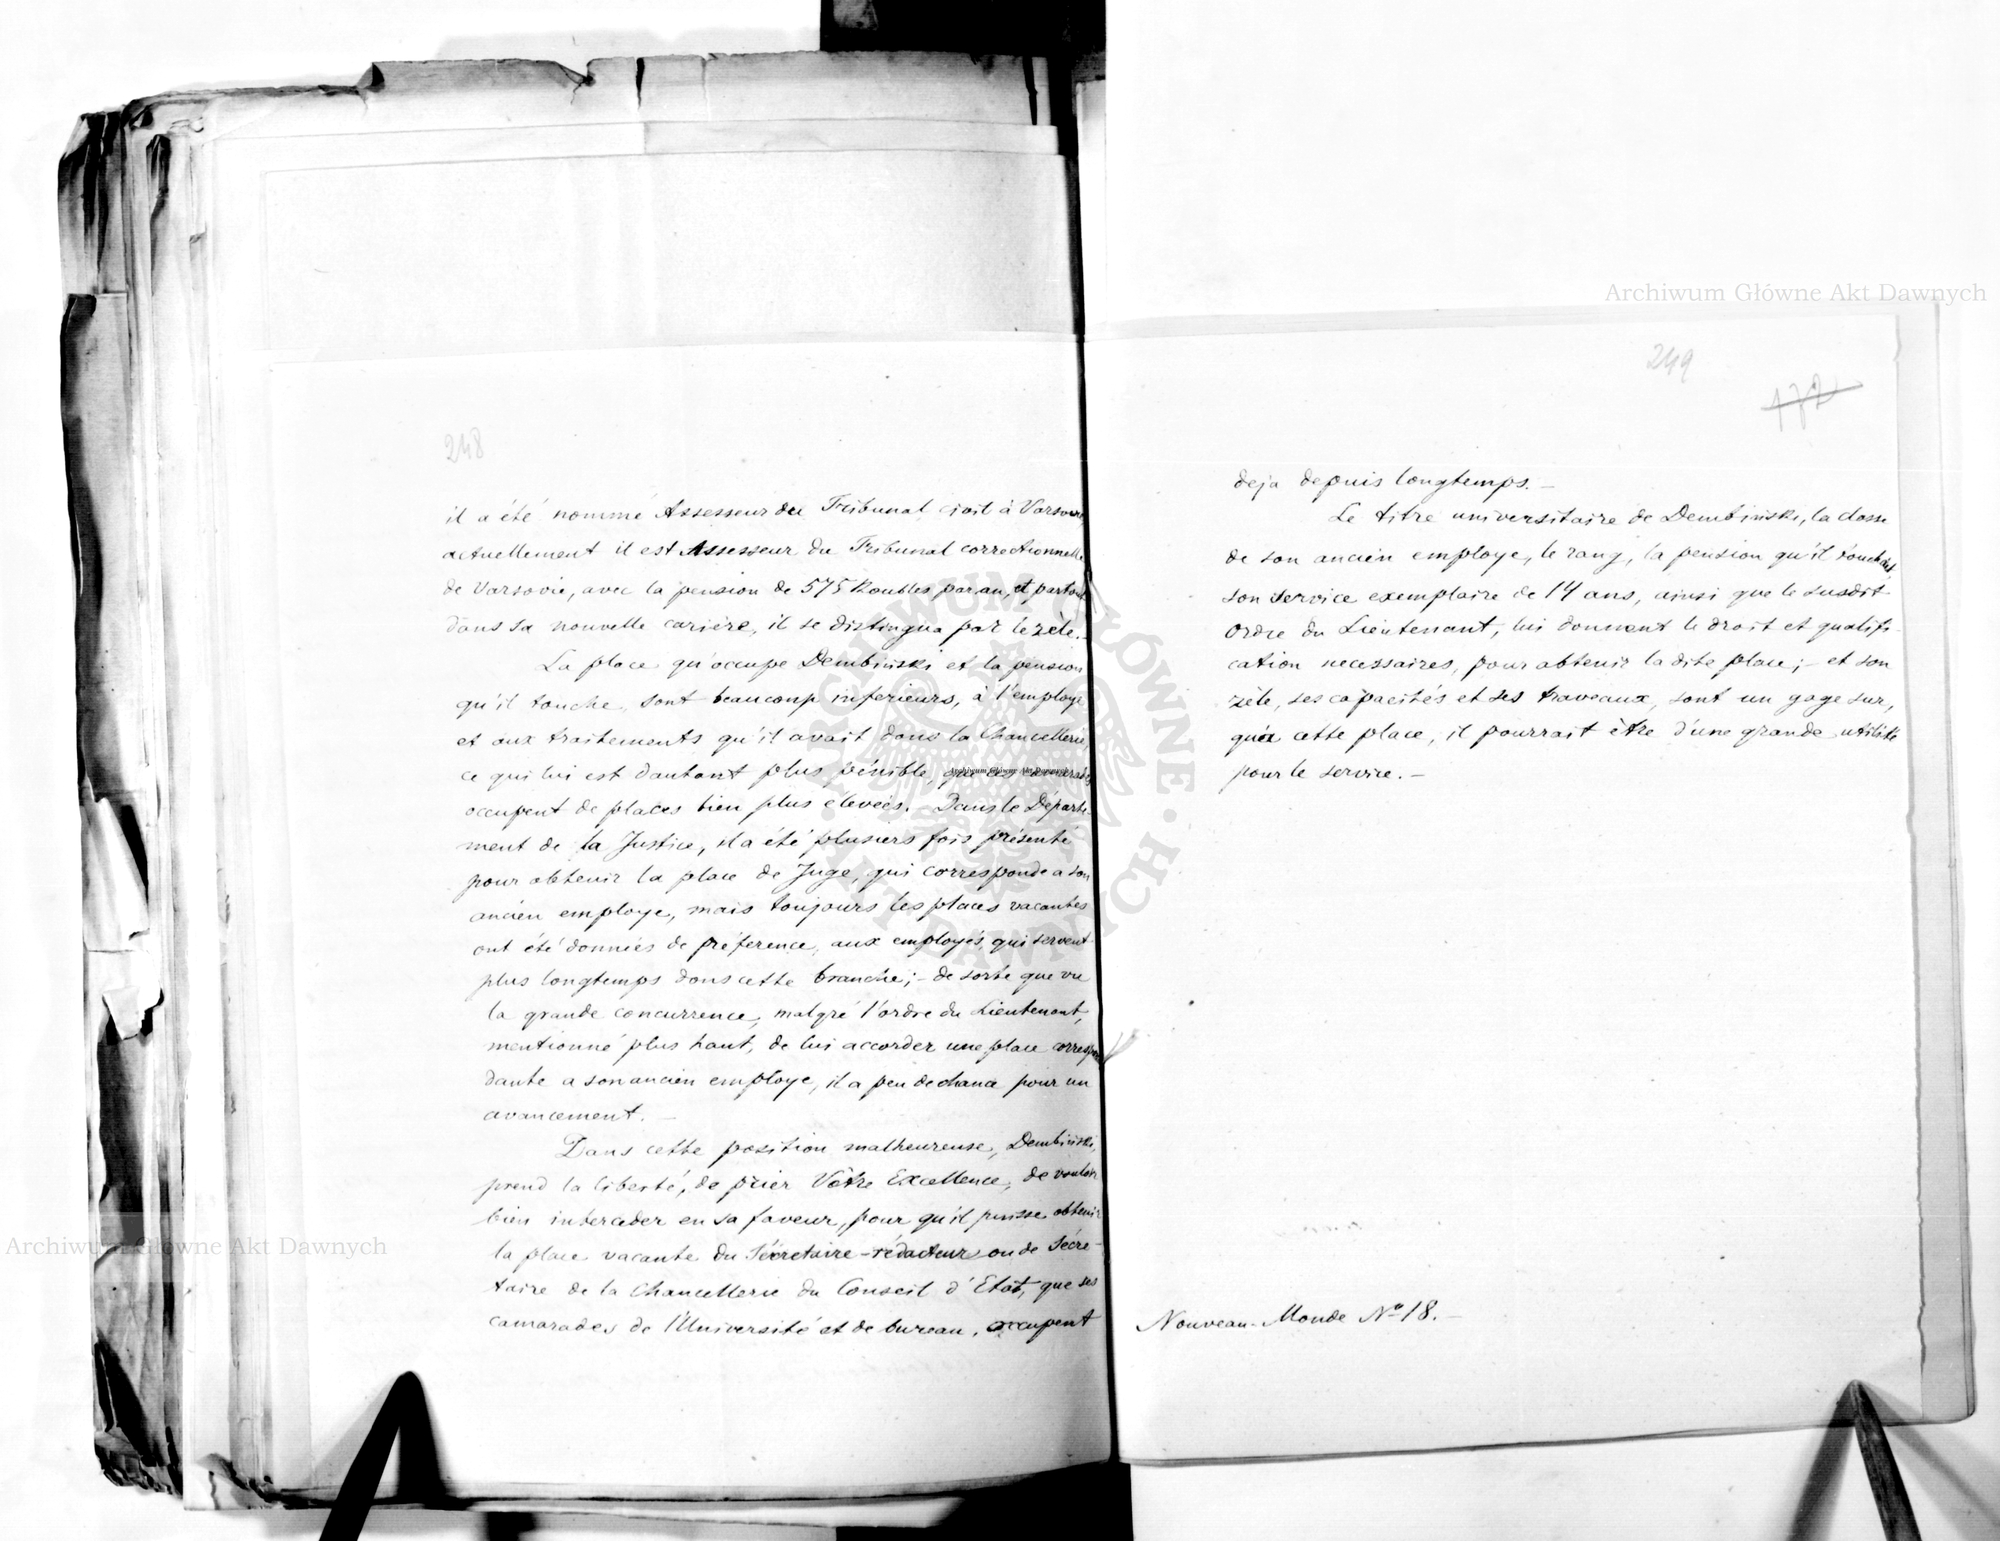 248
il a été nommé Assesseur du Tribunal civil à Varsovie,
actuellement il est Assesseur du Tribunal correctionnelle
de Varsovie, avec la pension de 575 Roubles par an, et partout
dans sa nouvelle carière, il se distingua par le zèle.
La place qu'occupe Dembiński et la pension
qu'il touche, sont beaucoup inferieurs, à l'employe
et aux traitements qu'il avait dans la Chancellerie,
ce qui lui est dautant plus pénible, que ses camarades
occupent de places bien plus élevées. – Dans le Départe-
ment de la Justice, il a été plusiers fois présenté
pour obtenir la place de Juge, qui corresponde a son
ancien employe, mais toujours les places vacantes
ont été données de préference, aux employés, qui servent
plus longtemps dans cette branche; – de sorte que vu
la grande concurrence, malgré l'ordre du Lieutenant,
mentionné plus haut, de lui accorder une place correspon
dante a son ancien employe, il a peu de chance pour un
avancement. –
Dans cette position malheureuse, Dembiński,
prend la liberté, de prier Vôtre Excellence, de vouloir
bien interceder en sa faveur, pour qu'il puisse obtenir
la place vacante du Sécretaire-rédacteur ou de Sécre-
taire de la Chancellerie du Conseil d'Etat, que ses
camarades de l'Université et de bureau, occupent
249
172
deja depuis longtemps. –
Le titre universitaire de Dembiński, la classe
de son ancien employe, le rang, la pension qu'il touchait,
son service exemplaire de 14 ans, ainsi que le susdit
Ordre du Lieutenant, lui donnent le droit et qualifi-
cation necessaires, pour obtenir la dite place; – et son
zèle, ses capacités et ses traveaux, sont un gage sur,
qu'a cette place, il pourrait être d'une grande utilité
pour le service. –
Nouveau-Monde No 18. –
Archiwum Główne Akt Dawnych
Archiwum Główne Akt Dawnych
Archiwum Główne Akt Dawnych
ARCHIWUM GŁÓWNE AKT DAWNYCH